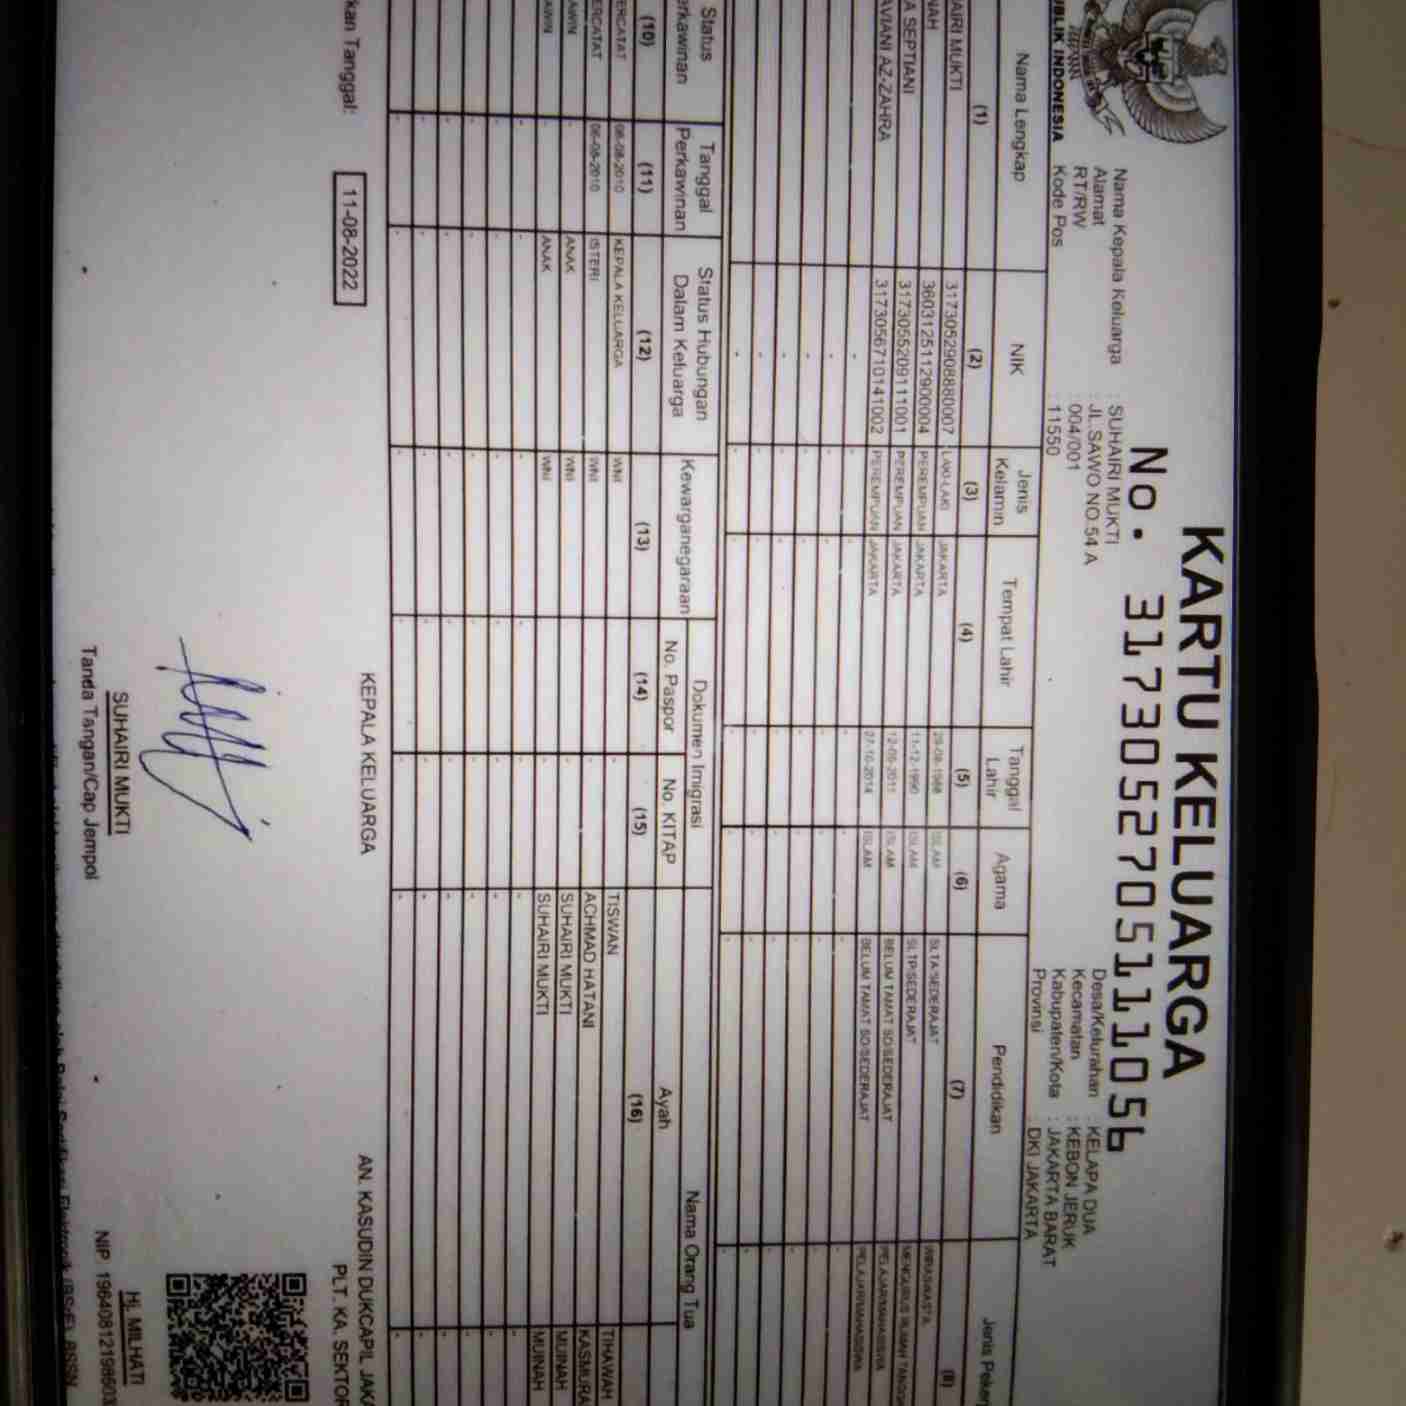 KARTU KELUARGA
No. 3173052705111056
UBLIK INDONESIA
Nama Kepala Keluarga : SUHAIRI MUKTI
Alamat : JL.SAWO NO.54 A
RT/RW : 004/001
Kode Pos : 11550
Desa/Kelurahan : KELAPA DUA
Kecamatan : KEBON JERUK
Kabupaten/Kota : JAKARTA BARAT
Provinsi : DKI JAKARTA
Nama Lengkap NIK Jenis Kelamin Tempat Lahir Tanggal Lahir Agama Pendidikan Jenis Pekerj
(1) (2) (3) (4) (5) (6) (7) (8)
AIRI MUKTI 3173052908880007 LAKI-LAKI JAKARTA 29-08-1988 ISLAM SLTA/SEDERAJAT WIRASWASTA
NAH 3603125112900004 PEREMPUAN JAKARTA 11-12-1990 ISLAM SLTP/SEDERAJAT MENGURUS RUMAH TANGG
A SEPTIANI 3173055209111001 PEREMPUAN JAKARTA 12-09-2011 ISLAM BELUM TAMAT SD/SEDERAJAT PELAJAR/MAHASISWA
AVIANI AZ-ZAHRA 3173056710141002 PEREMPUAN JAKARTA 27-10-2014 ISLAM BELUM TAMAT SD/SEDERAJAT PELAJAR/MAHASISWA
Status erkawinan Tanggal Perkawinan Status Hubungan Dalam Keluarga Kewarganegaraan Dokumen Imigrasi Nama Orang Tua
No. Paspor No. KITAP Ayah
(10) (11) (12) (13) (14) (15) (16)
ERCATAT 06-08-2010 KEPALA KELUARGA WNI - - TISWAN TIHAWAH
ERCATAT 06-08-2010 ISTERI WNI ACHMAD HATANI KASMURA
AWIN - ANAK WNI SUHAIRI MUKTI MUINAH
AWIN - ANAK WNI SUHAIRI MUKTI MUINAH
kan Tanggal: 11-08-2022
KEPALA KELUARGA
AN. KASUDIN DUKCAPIL JAKA
PLT. KA. SEKTOR
SUHAIRI MUKTI
Tanda Tangan/Cap Jempol
Hj. MILHATI
NIP. 1964081219850